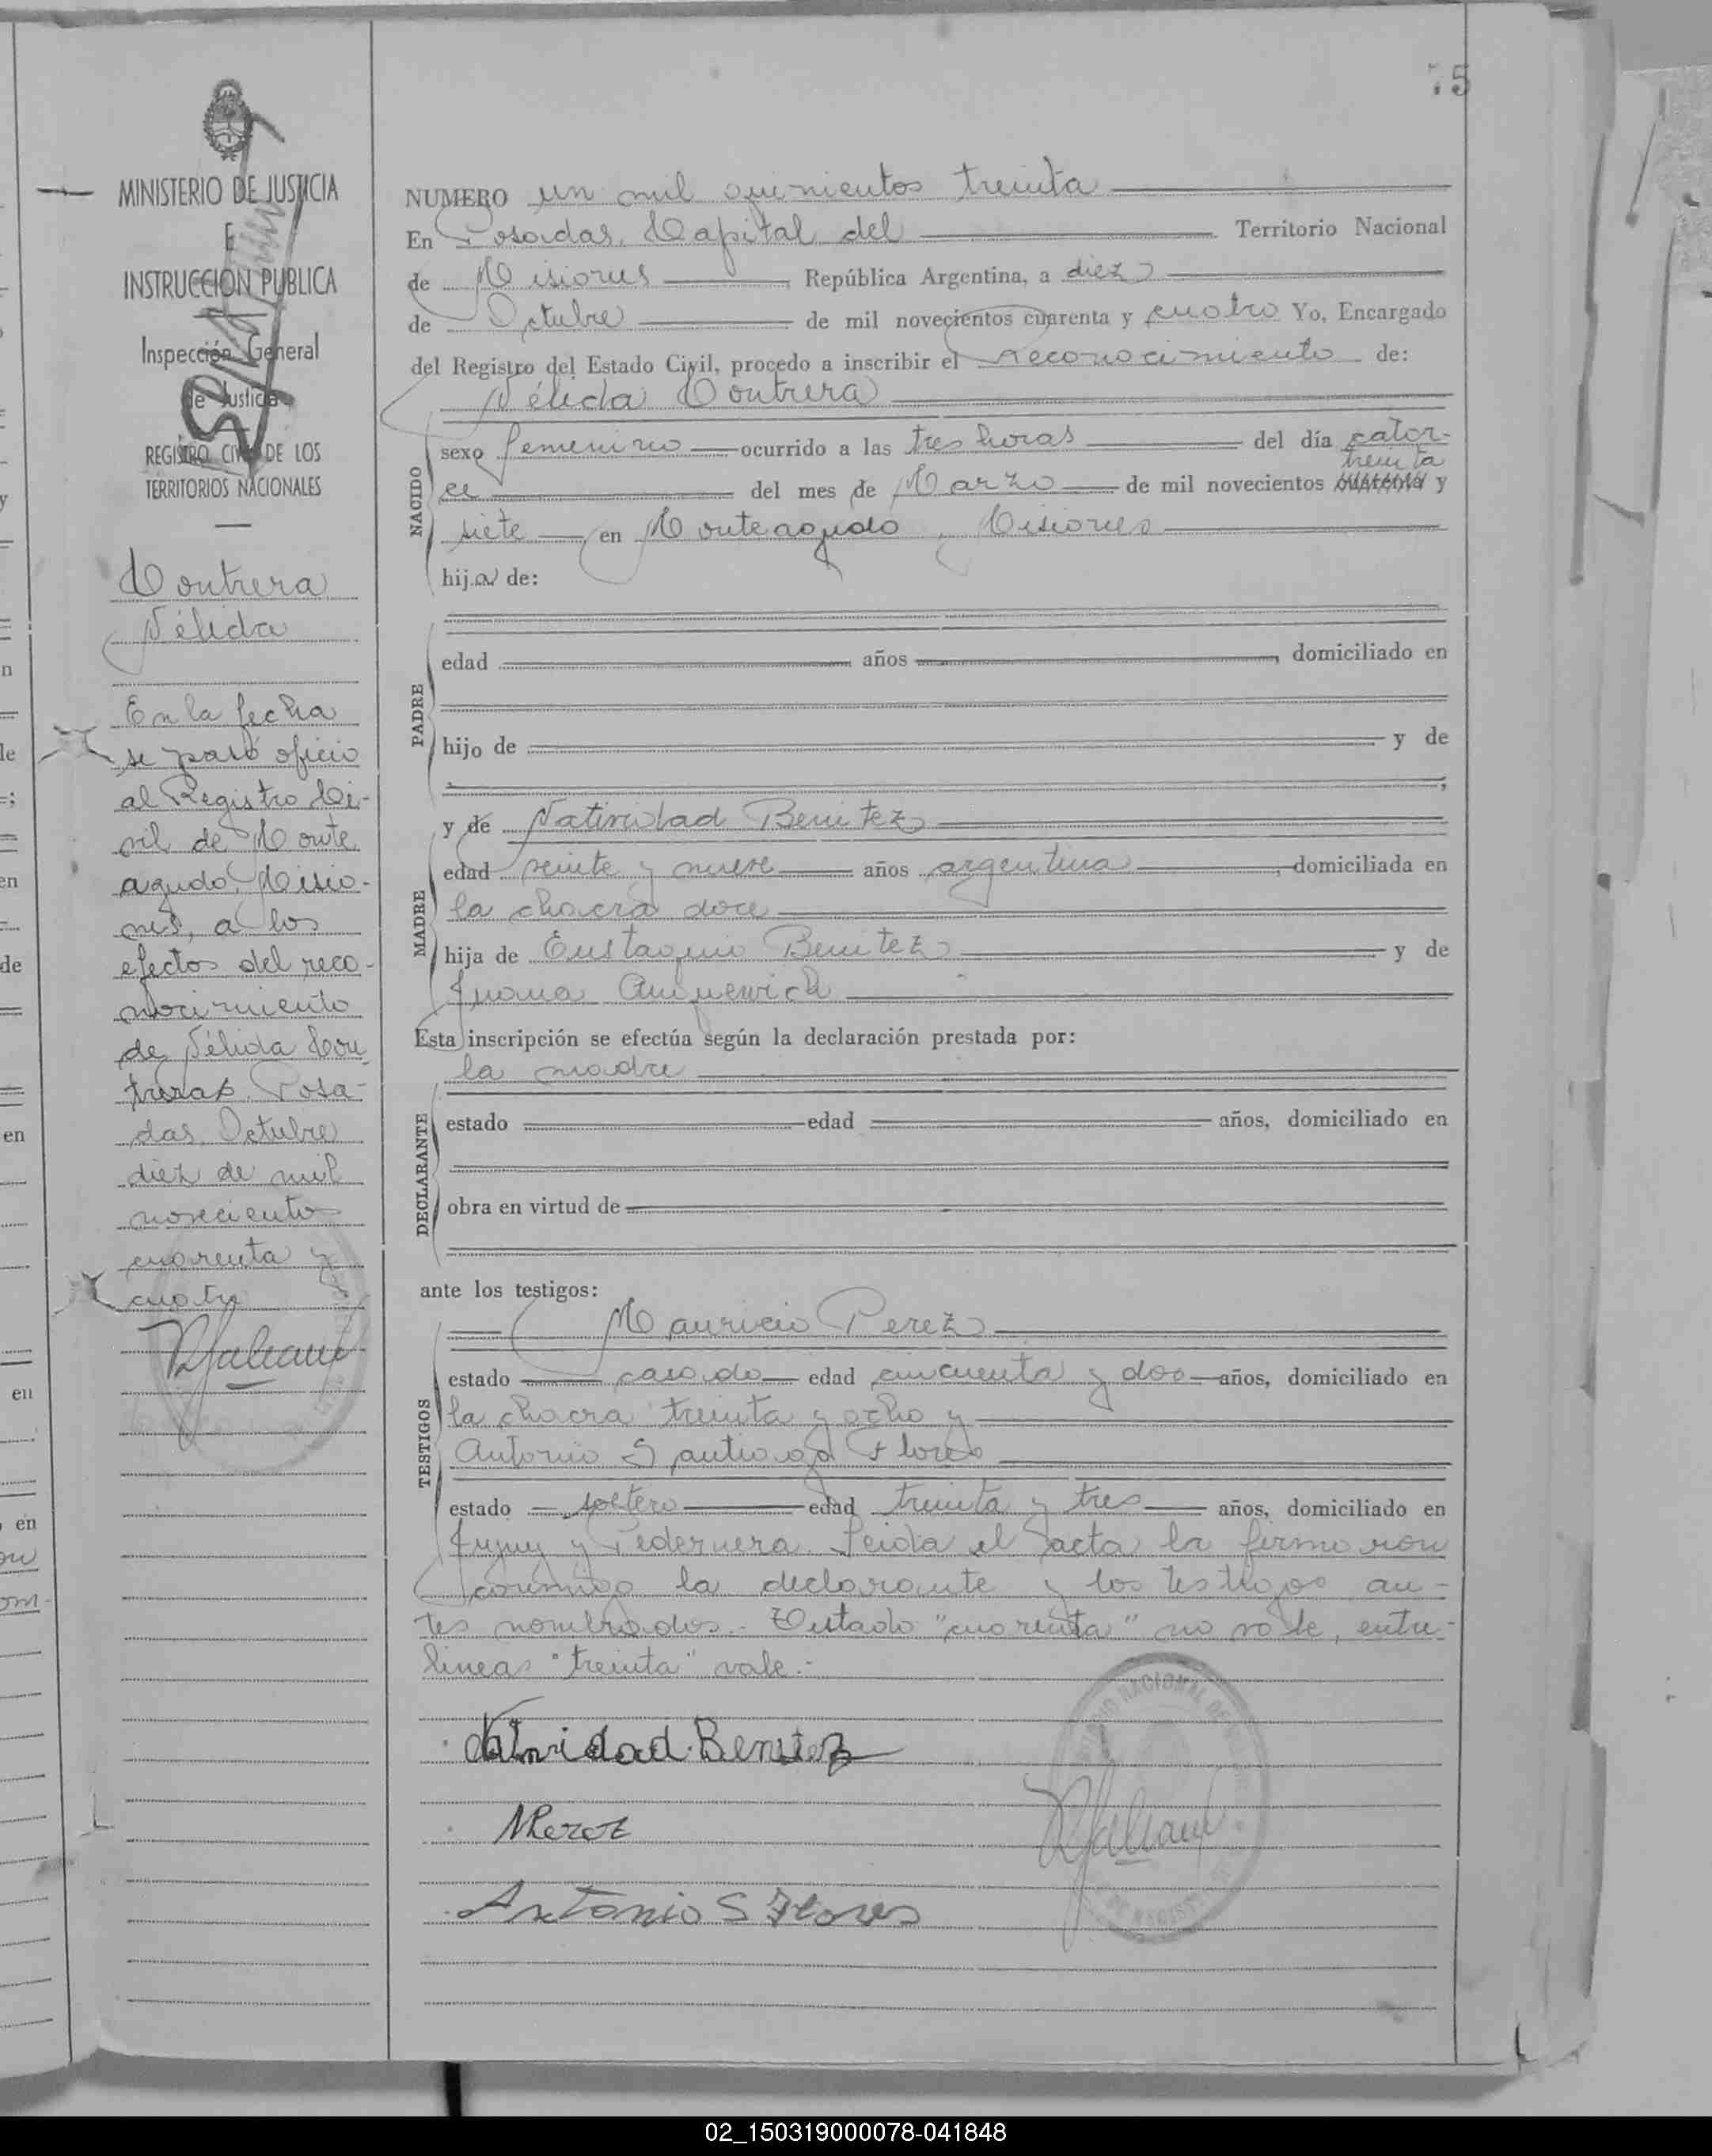 75
MINISTERIO DE JUSTICIA
E
INSTRUCCIÓN PUBLICA
Inspección General
de Justicia
REGISTRO CIVIL DE LOS
TERRITORIOS NACIONALES
Contrera
Nélida
En la fecha
se pasó oficio
al Registro Ci-
vil de Monte
agudo, Misio-
nes, a los
efectos del reco-
nocimiento
de Nélida Con
treras. Posa-
das, Octubre
diez de mil
novecientos
cuarenta y
cuatro
NUMERO un mil quinientos treinta
En Posadas, Capital del Territorio Nacional
de Misiones República Argentina, a diez
de Octubre de mil novecientos cuarenta y cuatro Yo, Encargado
del Registro del Estado Civil, procedo a inscribir el reconocimiento de:
Nélida Contrera
NACIDO
sexo femenino ocurrido a las tres horas del día cator-
treinta
ce del mes de Marzo de mil novecientos cuarenta y
siete en Monteagudo, Misiones
hija de:
PADRE
edad años , domiciliado en
hijo de y de
MADRE
y de Natividad Benitez
edad veinte y nueve años argentina , domiciliada en
la chacra doce
hija de Eustaquio Benitez y de
Juana
Esta inscripción se efectúa según la declaración prestada por:
la madre
DECLARANTE
estado edad años, domiciliado en
obra en virtud de
ante los testigos:
TESTIGOS
Mauricio Perez
estado casado edad cincuenta y dos años, domiciliado en
la chacra treinta y ocho y
Antonio Santiago Flores
estado soltero edad treinta y tres años, domiciliado en
Jujuy y Pedernera. Leida el acta la firmaron
conmigo la declarante y los testigos an-
tes nombrados.- Testado "cuarenta" no vale, entre-
lineas "treinta" vale.-
Natividad Benitez
MPerez
Antonio S Flores
02_150319000078-041848